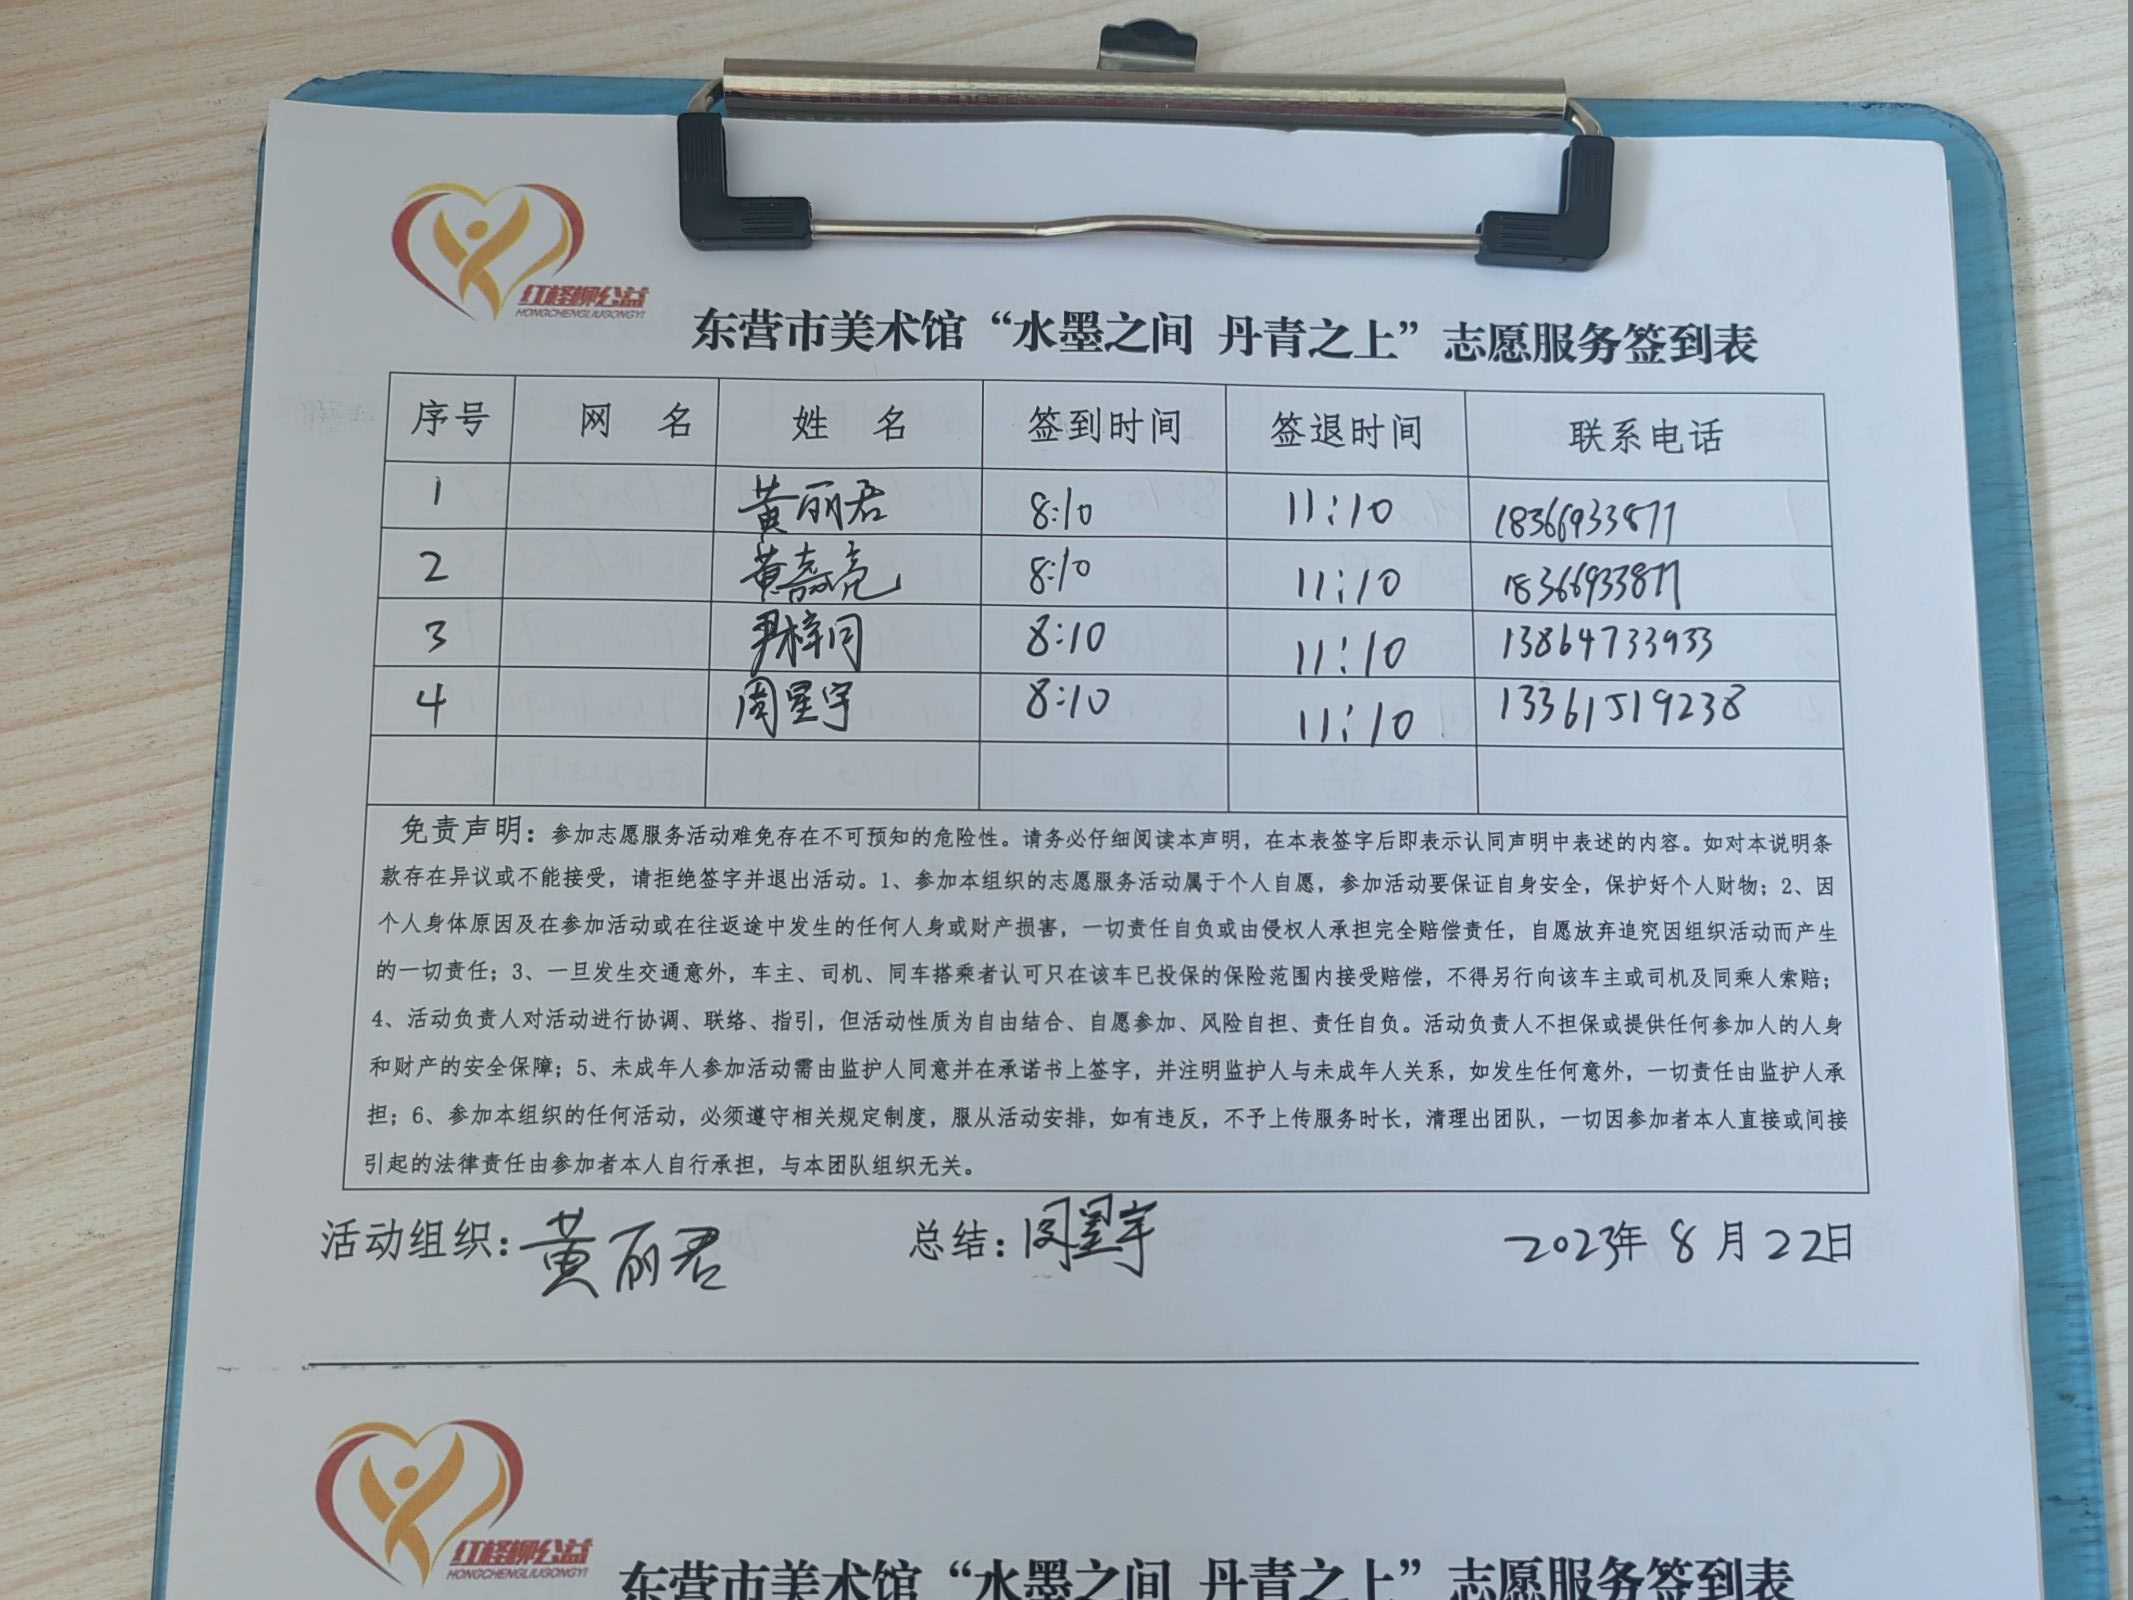 红柽柳公益
HONGCHENGLIUGONGYI
东营市美术馆“水墨之间 丹青之上”志愿服务签到表
序号 网 名 姓 名 签到时间 签退时间 联系电话
1 黄丽君 8:10 11:10 18366933877
2 黄嘉亮 8:10 11:10 18366933877
3 尹梓同 8:10 11:10 13864733933
4 周星宇 8:10 11:10 13361519238
免责声明：参加志愿服务活动难免存在不可预知的危险性。请务必仔细阅读本声明，在本表签字后即表示认同声明中表述的内容。如对本说明条
款存在异议或不能接受，请拒绝签字并退出活动。1、参加本组织的志愿服务活动属于个人自愿，参加活动要保证自身安全，保护好个人财物；2、因
个人身体原因及在参加活动或在往返途中发生的任何人身或财产损害，一切责任自负或由侵权人承担完全赔偿责任，自愿放弃追究因组织活动而产生
的一切责任；3、一旦发生交通意外，车主、司机、同车搭乘者认可只在该车已投保的保险范围内接受赔偿，不得另行向该车主或司机及同乘人索赔；
4、活动负责人对活动进行协调、联络、指引，但活动性质为自由结合、自愿参加、风险自担、责任自负。活动负责人不担保或提供任何参加人的人身
和财产的安全保障；5、未成年人参加活动需由监护人同意并在承诺书上签字，并注明监护人与未成年人关系，如发生任何意外，一切责任由监护人承
担；6、参加本组织的任何活动，必须遵守相关规定制度，服从活动安排，如有违反，不予上传服务时长，清理出团队，一切因参加者本人直接或间接
引起的法律责任由参加者本人自行承担，与本团队组织无关。
活动组织：黄丽君 总结：周星宇 2023年 8 月 22日
红柽柳公益
HONGCHENGLIUGONGYI
东营市美术馆“水墨之间 丹青之上”志愿服务签到表